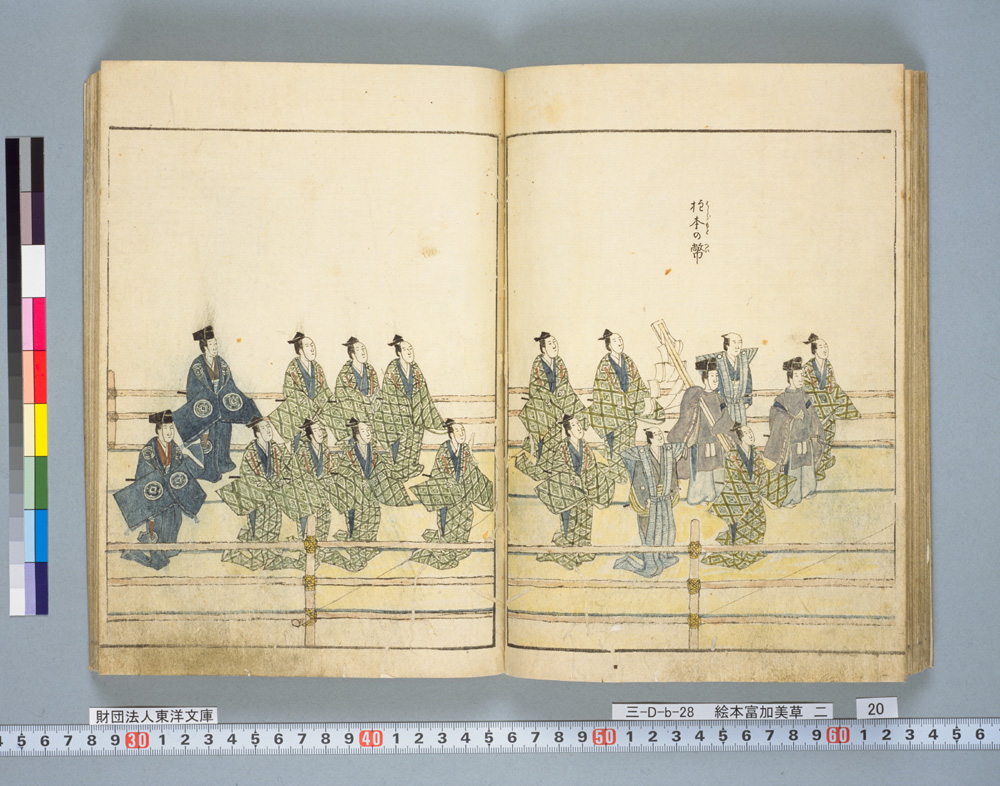 本の幣
財団法人東洋文庫
三-D-b-28 絵本富加美草 二
20
4 5 6 7 8 9 30 1 2 3 4 5 6 7 8 9 40 1 2 3 4 5 6 7 8 9 50 1 2 3 4 5 6 7 8 9 60 1 2 3 4 5 6